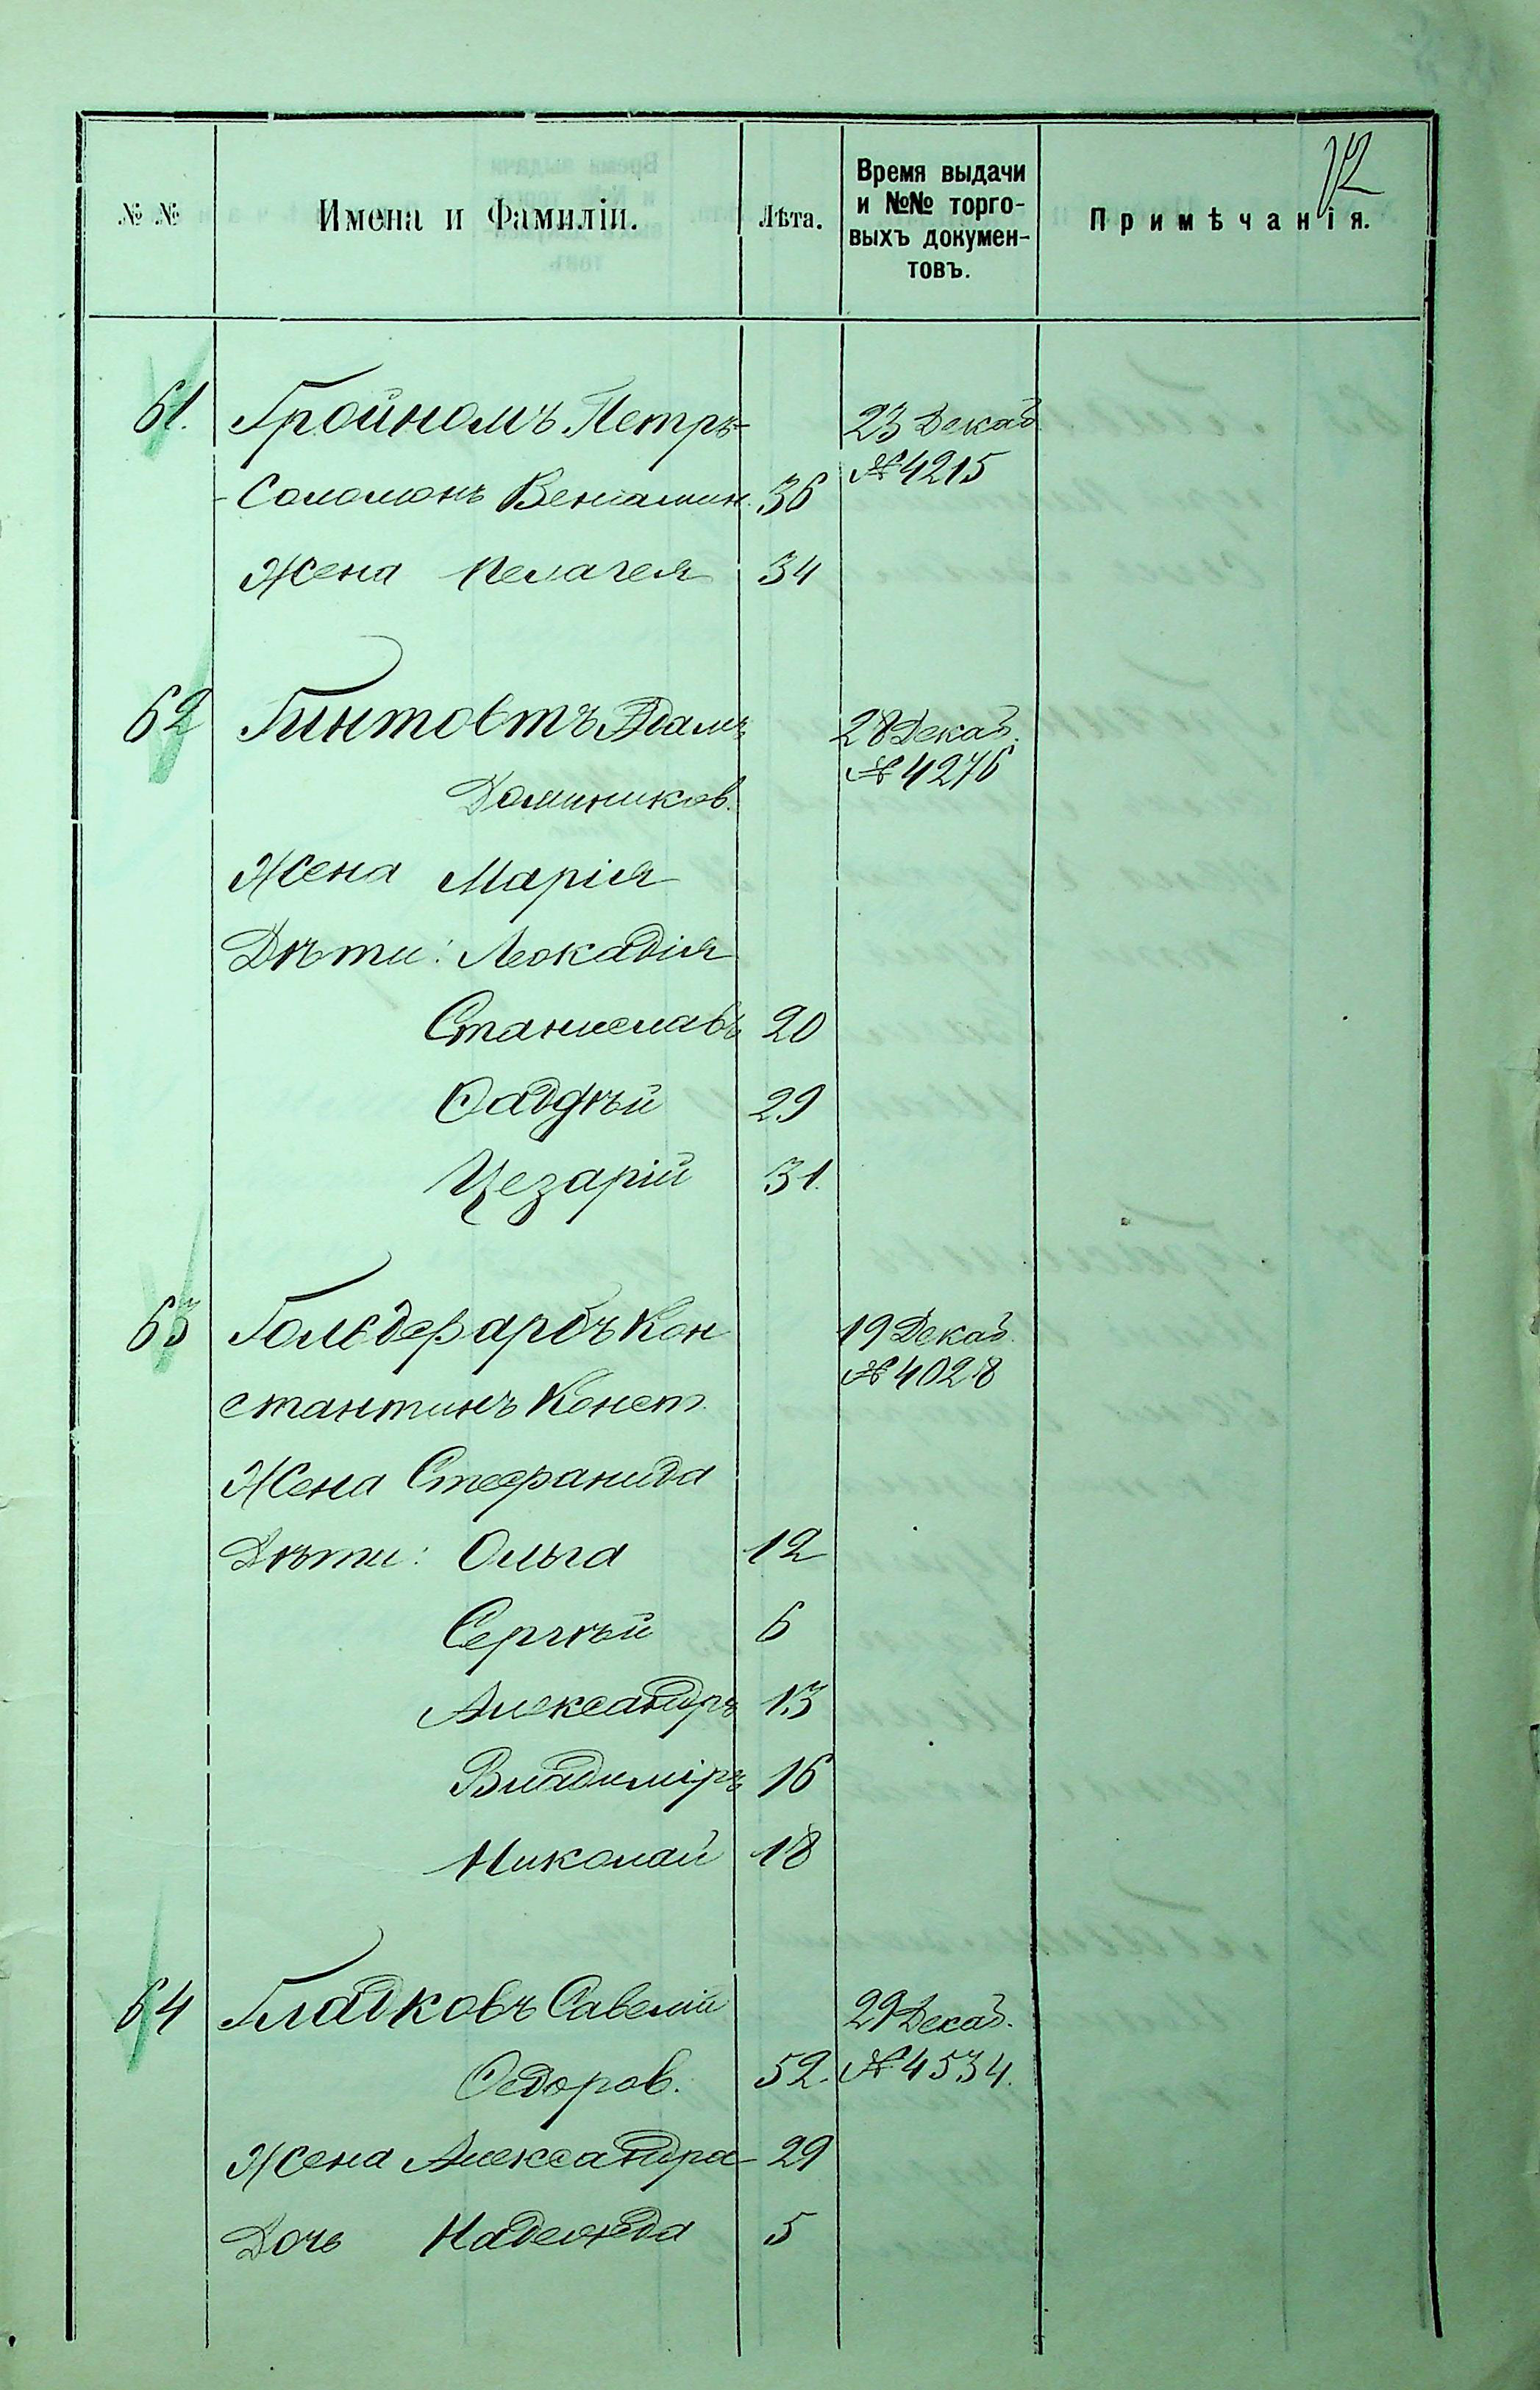 12
№ № Имена и Фамиліи. Лѣта. Время выдачи и №№ торго-выхъ докумен-товъ. Примѣчанія.
61. Гройномъ Петръ- 23 Декаб
-Соломонъ Веніамин. 36 № 4215
Жена Пелагея 34
62 Гинтовтъ Адамъ 28 Декаб.
Домиников. № 4276
Жена Марія
Дѣти: Леокадія
Станиславъ 20
Фаддѣй 29
Цезарій 31.
63 Гольдерарбъ Кон 19 Декаб.
стантинъ Конст. № 4028
Жена Стефанида
Дѣти: Ольга 12
Сергѣй 6
Александръ 13
Владиміръ 16
Николай 18
64 Гладковъ Савелій 29 Декаб.
Ѳедоров. 52. № 4534.
Жена Александра 29
Дочь Надежда 5